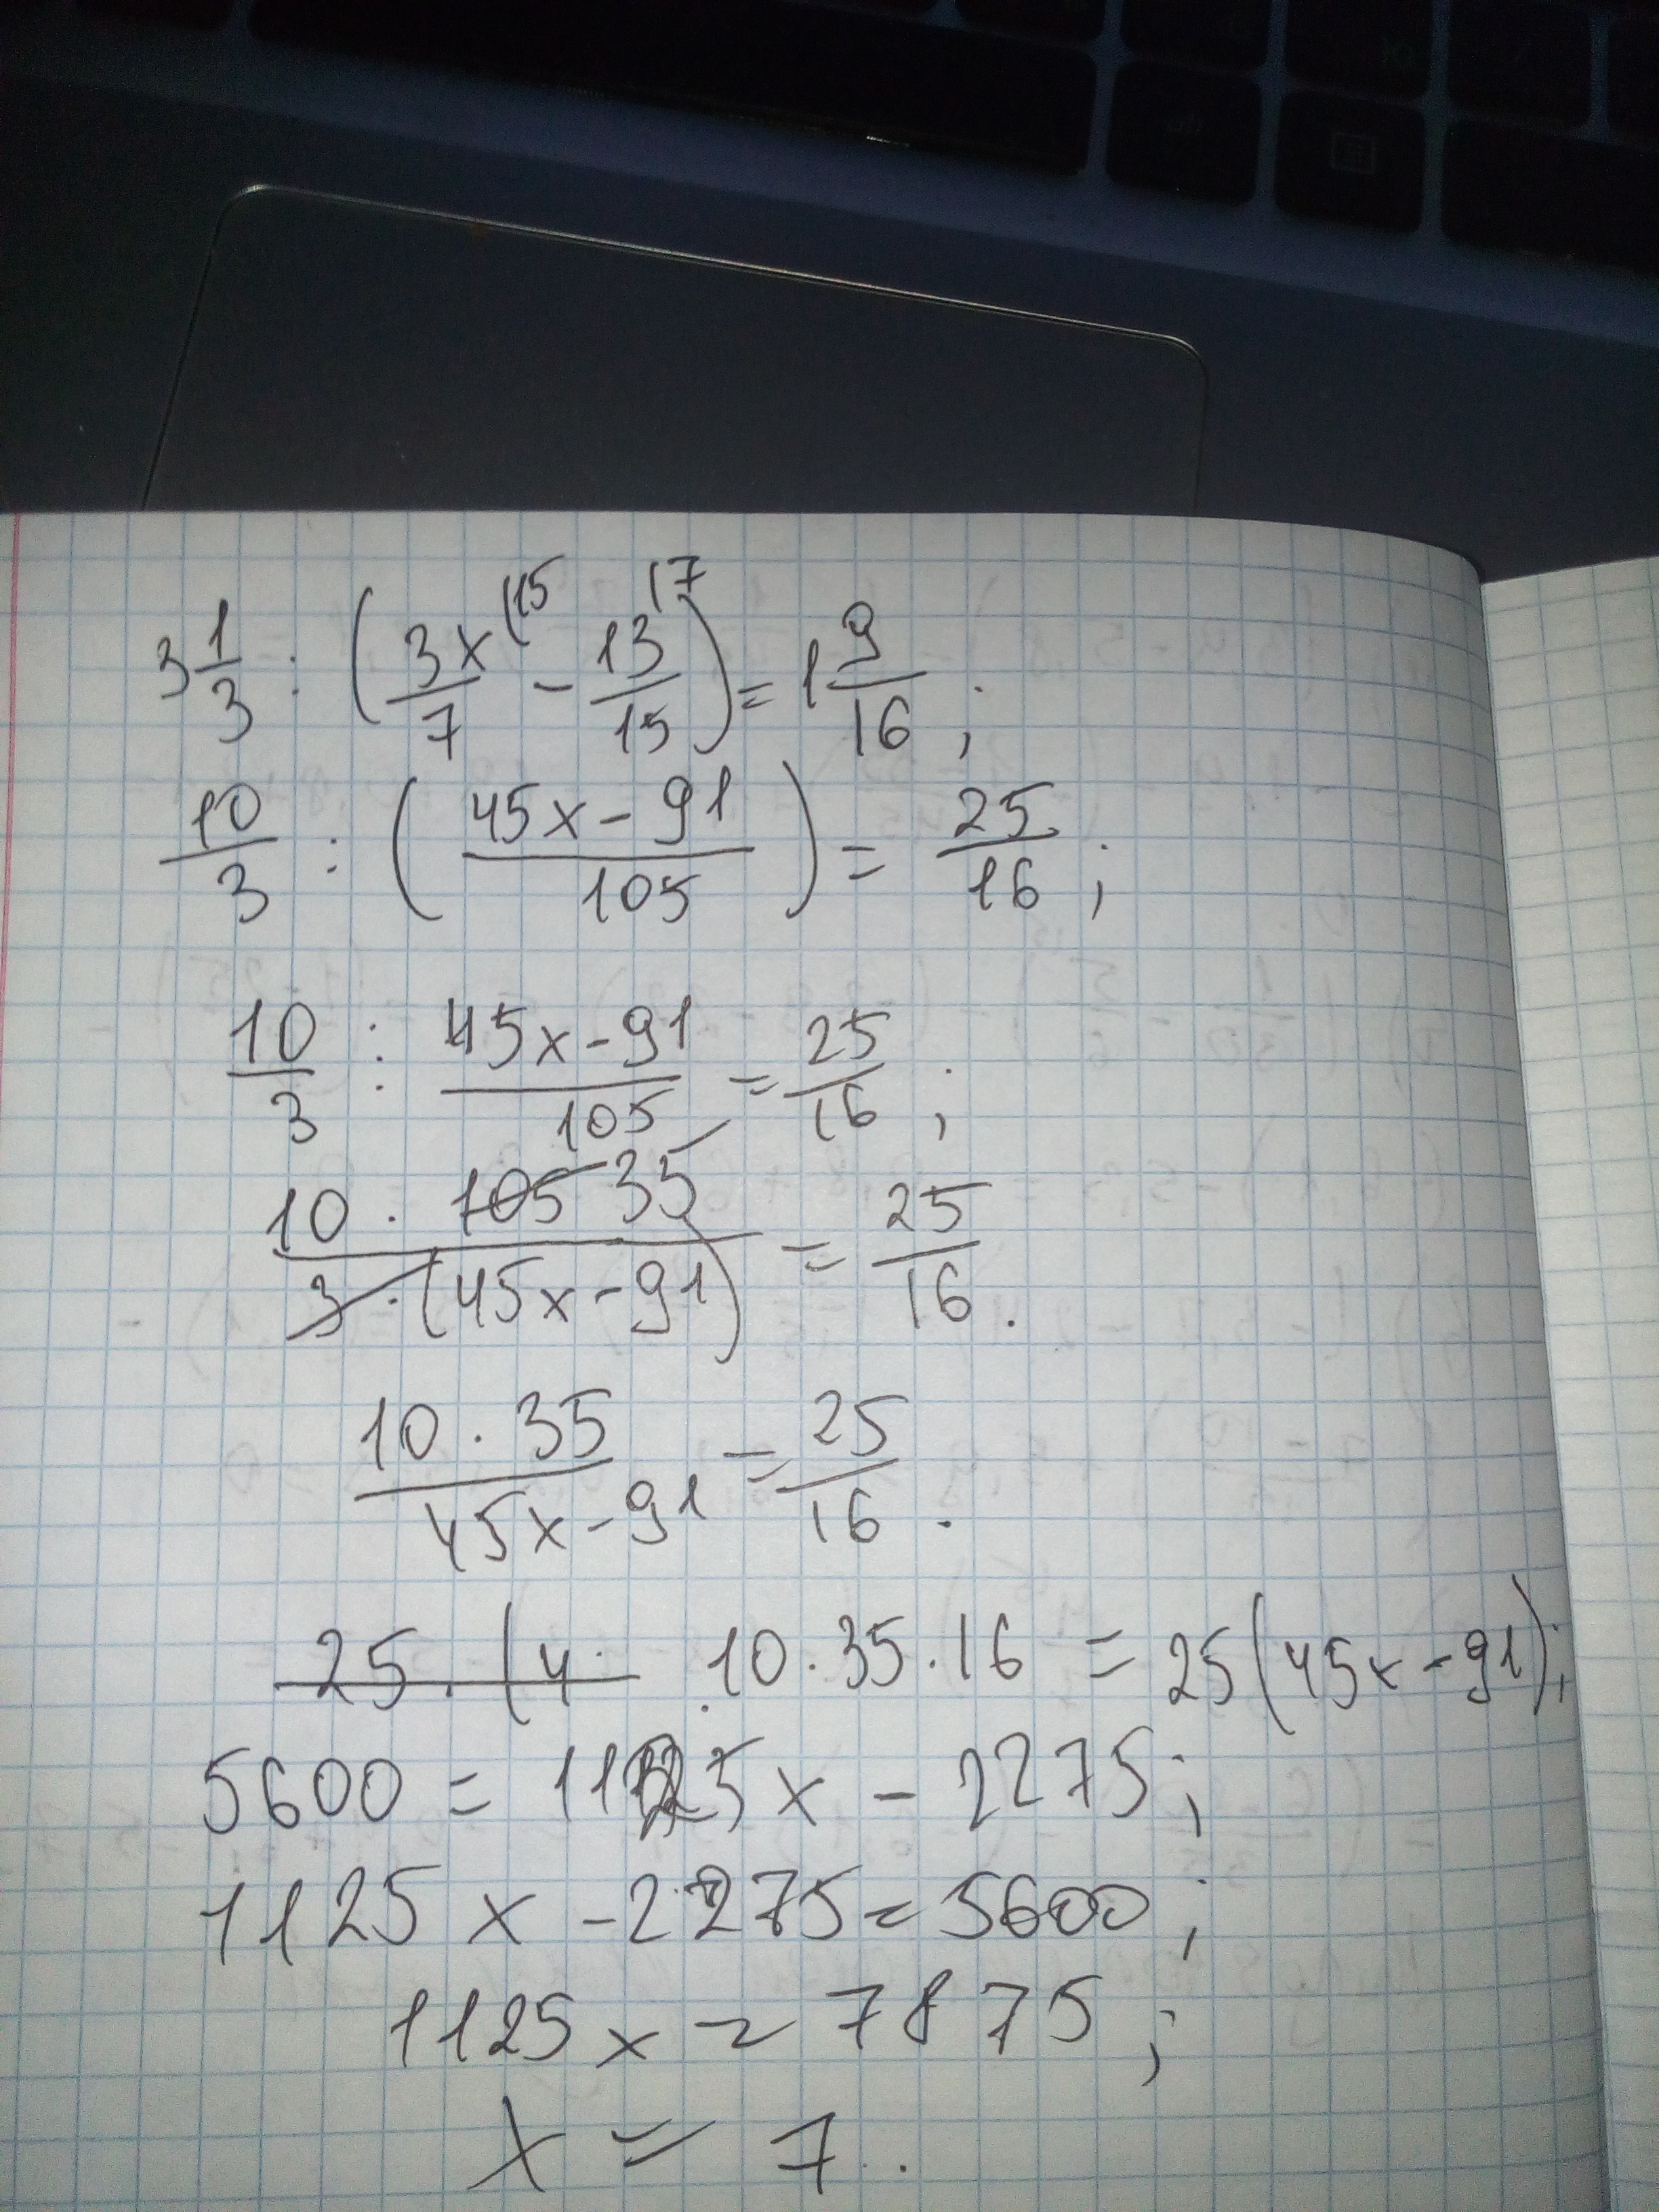 3 1/3 : (3x/7 (15 - 13/15 (7) = 1 9/16 ;
10/3 : (45x - 91/105) = 25/16 ;
10/3 : 45x - 91/105 = 25/16 ;
10 · 105 35/3 · (45x - 91) = 25/16 .
10 · 35/45x - 91 = 25/16 .
25 · (4 · 10 · 35 · 16 = 25(45x - 91);
5600 = 1125x - 2275;
1125x - 2275 = 5600;
1125x = 7875;
x = 7.